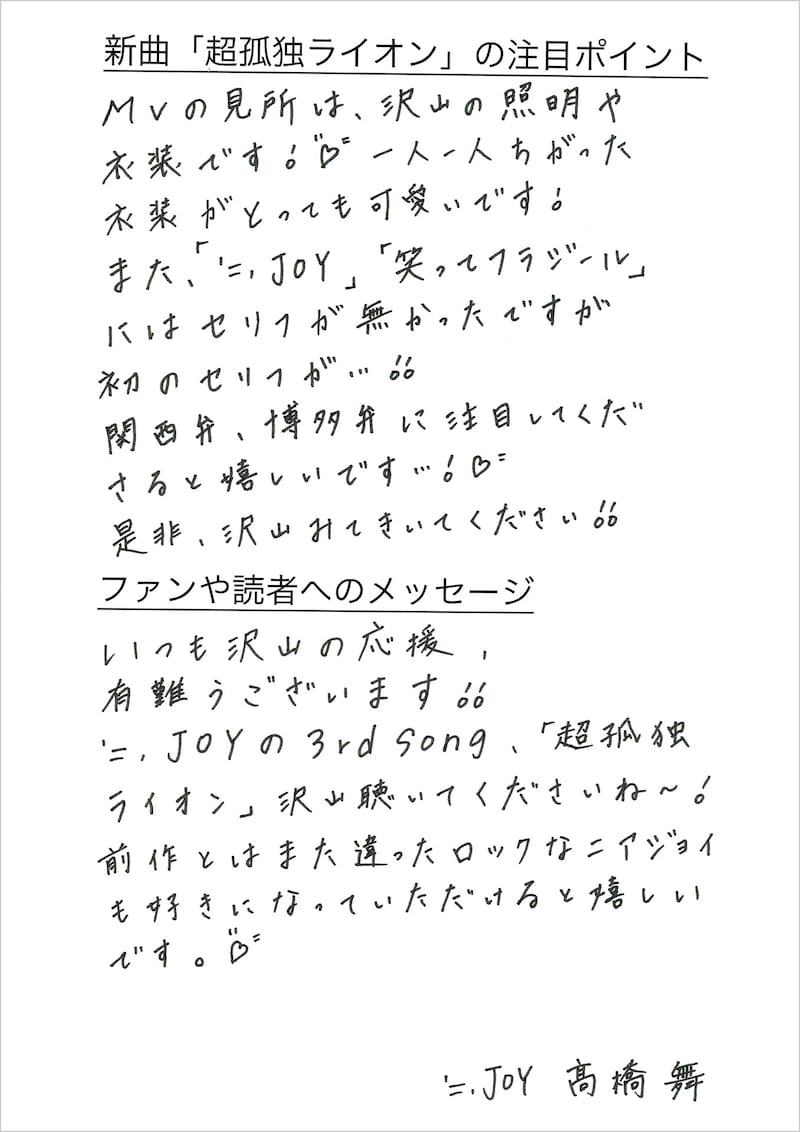 新曲「超孤独ライオン」の注目ポイント
MVの見所は、沢山の照明や
衣装です!♡ 一人一人ちがった
衣装がとっても可愛いです!
また、「≒JOY」「笑ってフラジール」
にはセリフが無かったですが
初のセリフが…!!
関西弁、博多弁に注目してくだ
さると嬉しいです…!♡
是非、沢山みてきいてください!!
ファンや読者へのメッセージ
いつも沢山の応援、
有難うございます!!
≒JOYの3rd Song、「超孤独
ライオン」沢山聴いてくださいね〜!
前作とはまた違ったロックなニアジョイ
も好きになっていただけると嬉しい
です。♡
≒JOY 髙橋舞